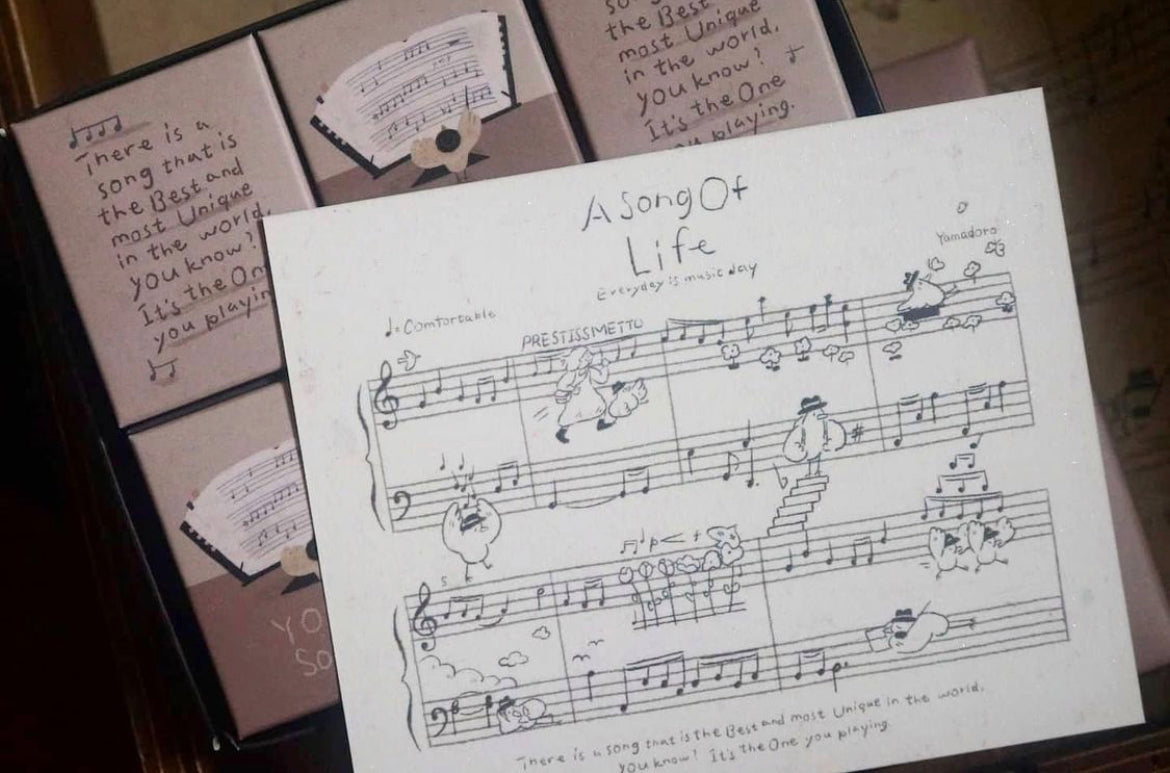 There is a
song that is
the Best and
most Unique
in the world,
you know?
It's the On
you playin
the Best
most Unique
in the world,
you know?
It's the One
you playing.
YO
So
A Song Of
Life
Everyday is music day
Yamadoro
♩= Comfortable
PRESTISSIMETTO
There is a song that is the Best and most Unique in the world,
you know? It's the One you playing.